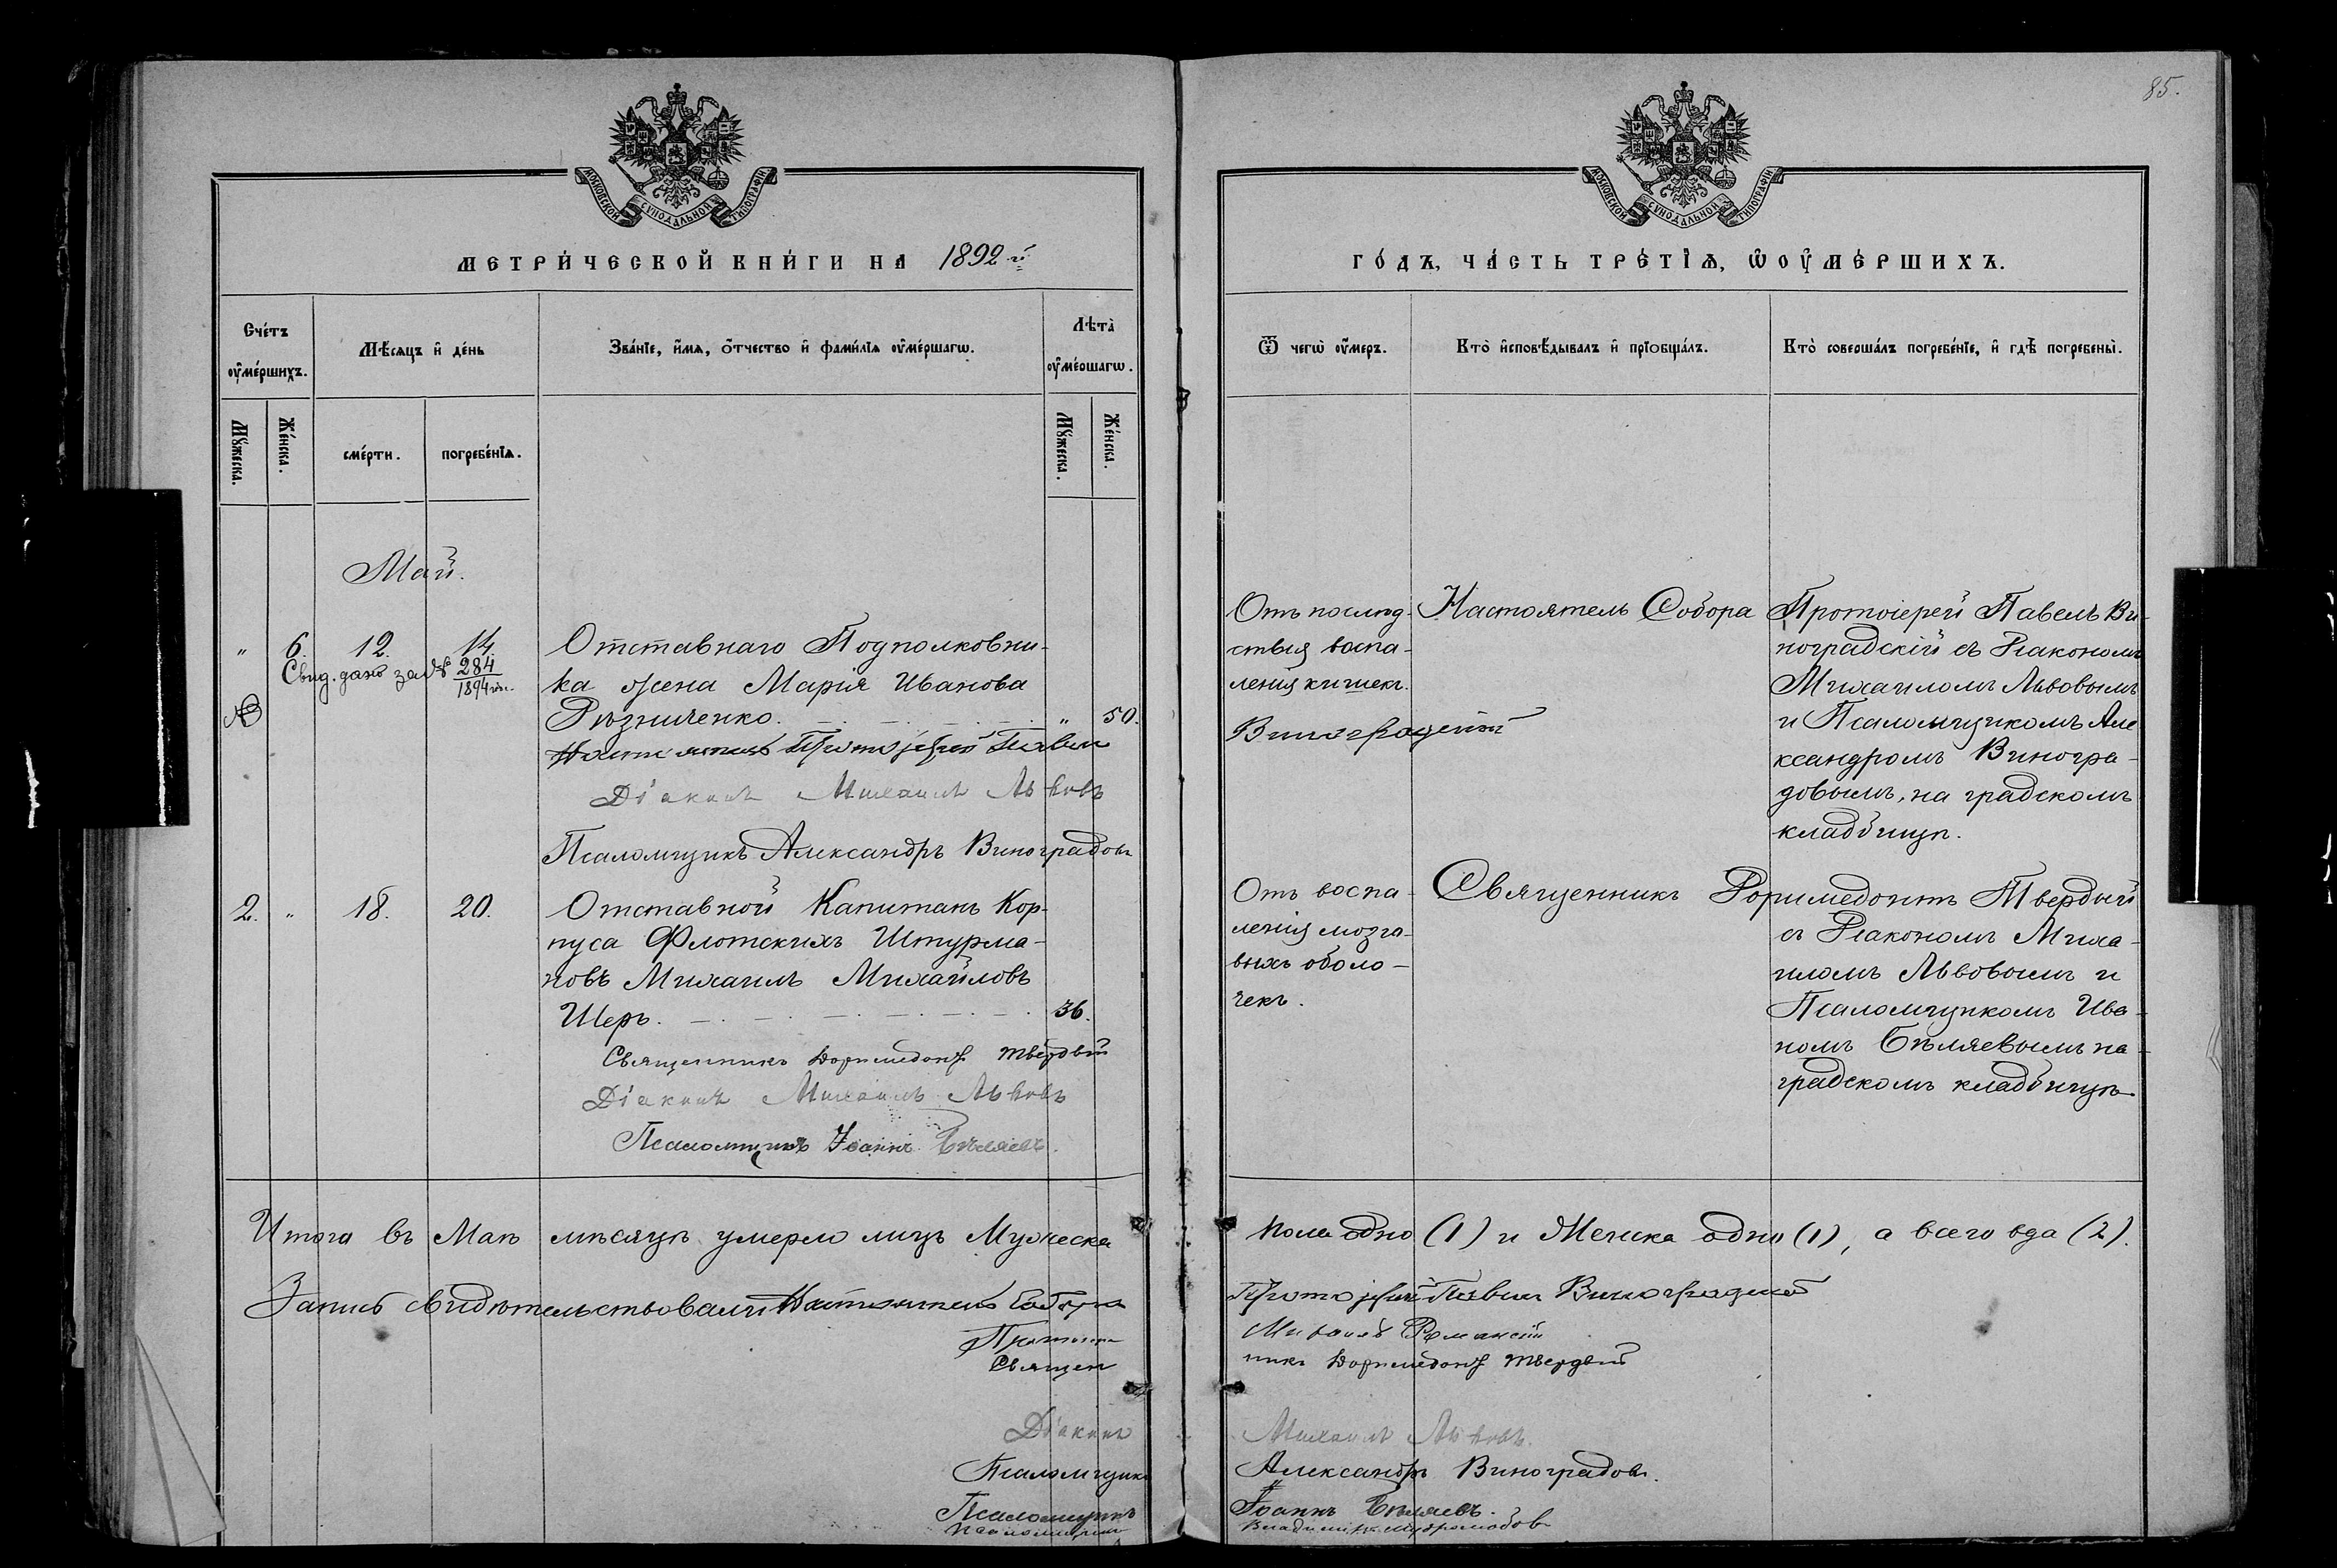 85.
МОСКОВСКОЙ СѴНОДАЛЬНОЙ ТИПОГРАФІИ
МЕТРИ́ЧЕСКОЙ КНИ́ГИ НА 1892 й
Сче́тъ ᲂу҆ме́ршихъ.
Мѣ́сяцъ и҆ де́нь
Зва́нїе, и҆́мѧ, ѻ҆́тчество и҆ фами́лїѧ ᲂу҆ме́ршагѡ.
Лѣта̀ ᲂу҆ме́ршагѡ.
Мꙋ́жеска.
Же́нска.
сме́рти.
погребе́нїѧ.
Мꙋ́жеска.
Же́нска.
Май.
" 6. 12. 14.
Свид. дано за № 284
1894 г.
Отставнаго Подполковни-
ка жена Марія Иванова
Рѣзниченко. " 50.
Настоятель Протоіерей Павелъ
Діаконъ Михаилъ Львовъ
Псаломщикъ Александръ Виноградовъ
2. " 18. 20.
Отставной Капитанъ Кор-
пуса Флотскихъ Штурма-
новъ Михаилъ Михайловъ
Шеръ. 36.
Священникъ Доримедонтъ Твердый
Діаконъ Михаилъ Львовъ
Псаломщикъ Іоаннъ Бѣляевъ.
Итого въ Маѣ мѣсяцѣ умерло лицъ Мужеска
Запись свидѣтельствовали: Настоятель Собора
Протоіе
Священ
Діаконъ
Псаломщикъ
Псаломщикъ
Псаломщикъ
МОСКОВСКОЙ СѴНОДАЛЬНОЙ ТИПОГРАФІИ
ГО́ДЪ, ЧА́СТЬ ТРЕ́ТЇѦ, Ѡ҆ ОУ҆МЕ́РШИХЪ.
Ѿ чегѡ̀ ᲂу҆́меръ.
Кто̀ и҆сповѣ́дывалъ и҆ прїѻбща́лъ.
Кто̀ соверша́лъ погребе́нїе, и҆ гдѣ̀ погребены̀.
Отъ послѣд-
ствія воспа-
ленія кишекъ.
Виноградскій
Настоятель Собора
Протоіерей Павелъ Ви-
ноградскій съ Діакономъ
Михаиломъ Львовымъ
и Псаломщикомъ Але
ксандромъ Виногра-
довымъ, на градскомъ
кладбищѣ.
Отъ воспа-
ленія мозго-
выхъ оболо-
чекъ.
Священникъ Доримедонтъ Твердый
съ Діакономъ Миха-
иломъ Львовымъ и
Псаломщикомъ Ива-
номъ Бѣляевымъ на-
градскомъ кладбищѣ
пола одно (1) и Женска одно (1), а всего два (2).
Протоіерей Павелъ Виноградскій
Михаилъ Романскій
никъ Доримедонтъ Твердый
Михаилъ Львовъ.
Александръ Виноградовъ.
Іоаннъ Бѣляевъ.